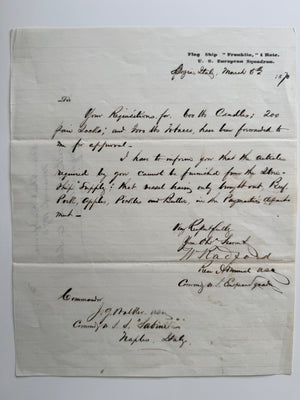 Flag Ship "Franklin," 1 Rate,
U. S. European Squadron.
Spezia, Italy, March 6th 1870
Sir
Your Requisitions for lbs Candles; 200
pair Socks; and lbs Tobacco, have been forwarded to
me for approval.
I have to inform you that the articles
required by you cannot be furnished from the Store-
ship "Supply"; that vessel having only brought out, Beef
Pork, Apples, Pickles and Butter, in the Paymaster's depart-
ment.
Very Respectfully
Your Obt Servt
W Radford
Rear Admiral USN
Comdg U. S. European Squad
Commander
J. G. Walker USN
Comdg U. S. S. "Sabine"
Naples, Italy.